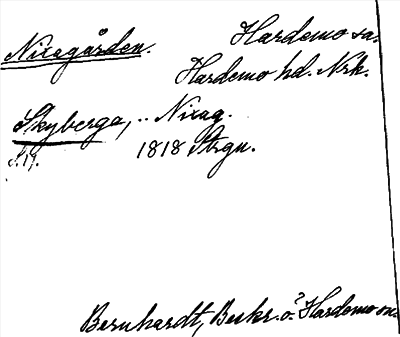 Nixagården. Hardemo sn.
Hardemo hd. Nrk.
Skyberga, .. Nixag.
S. 17. 1818 Strgn.
Bernhardt, Beskr. o? Hardemo sn.